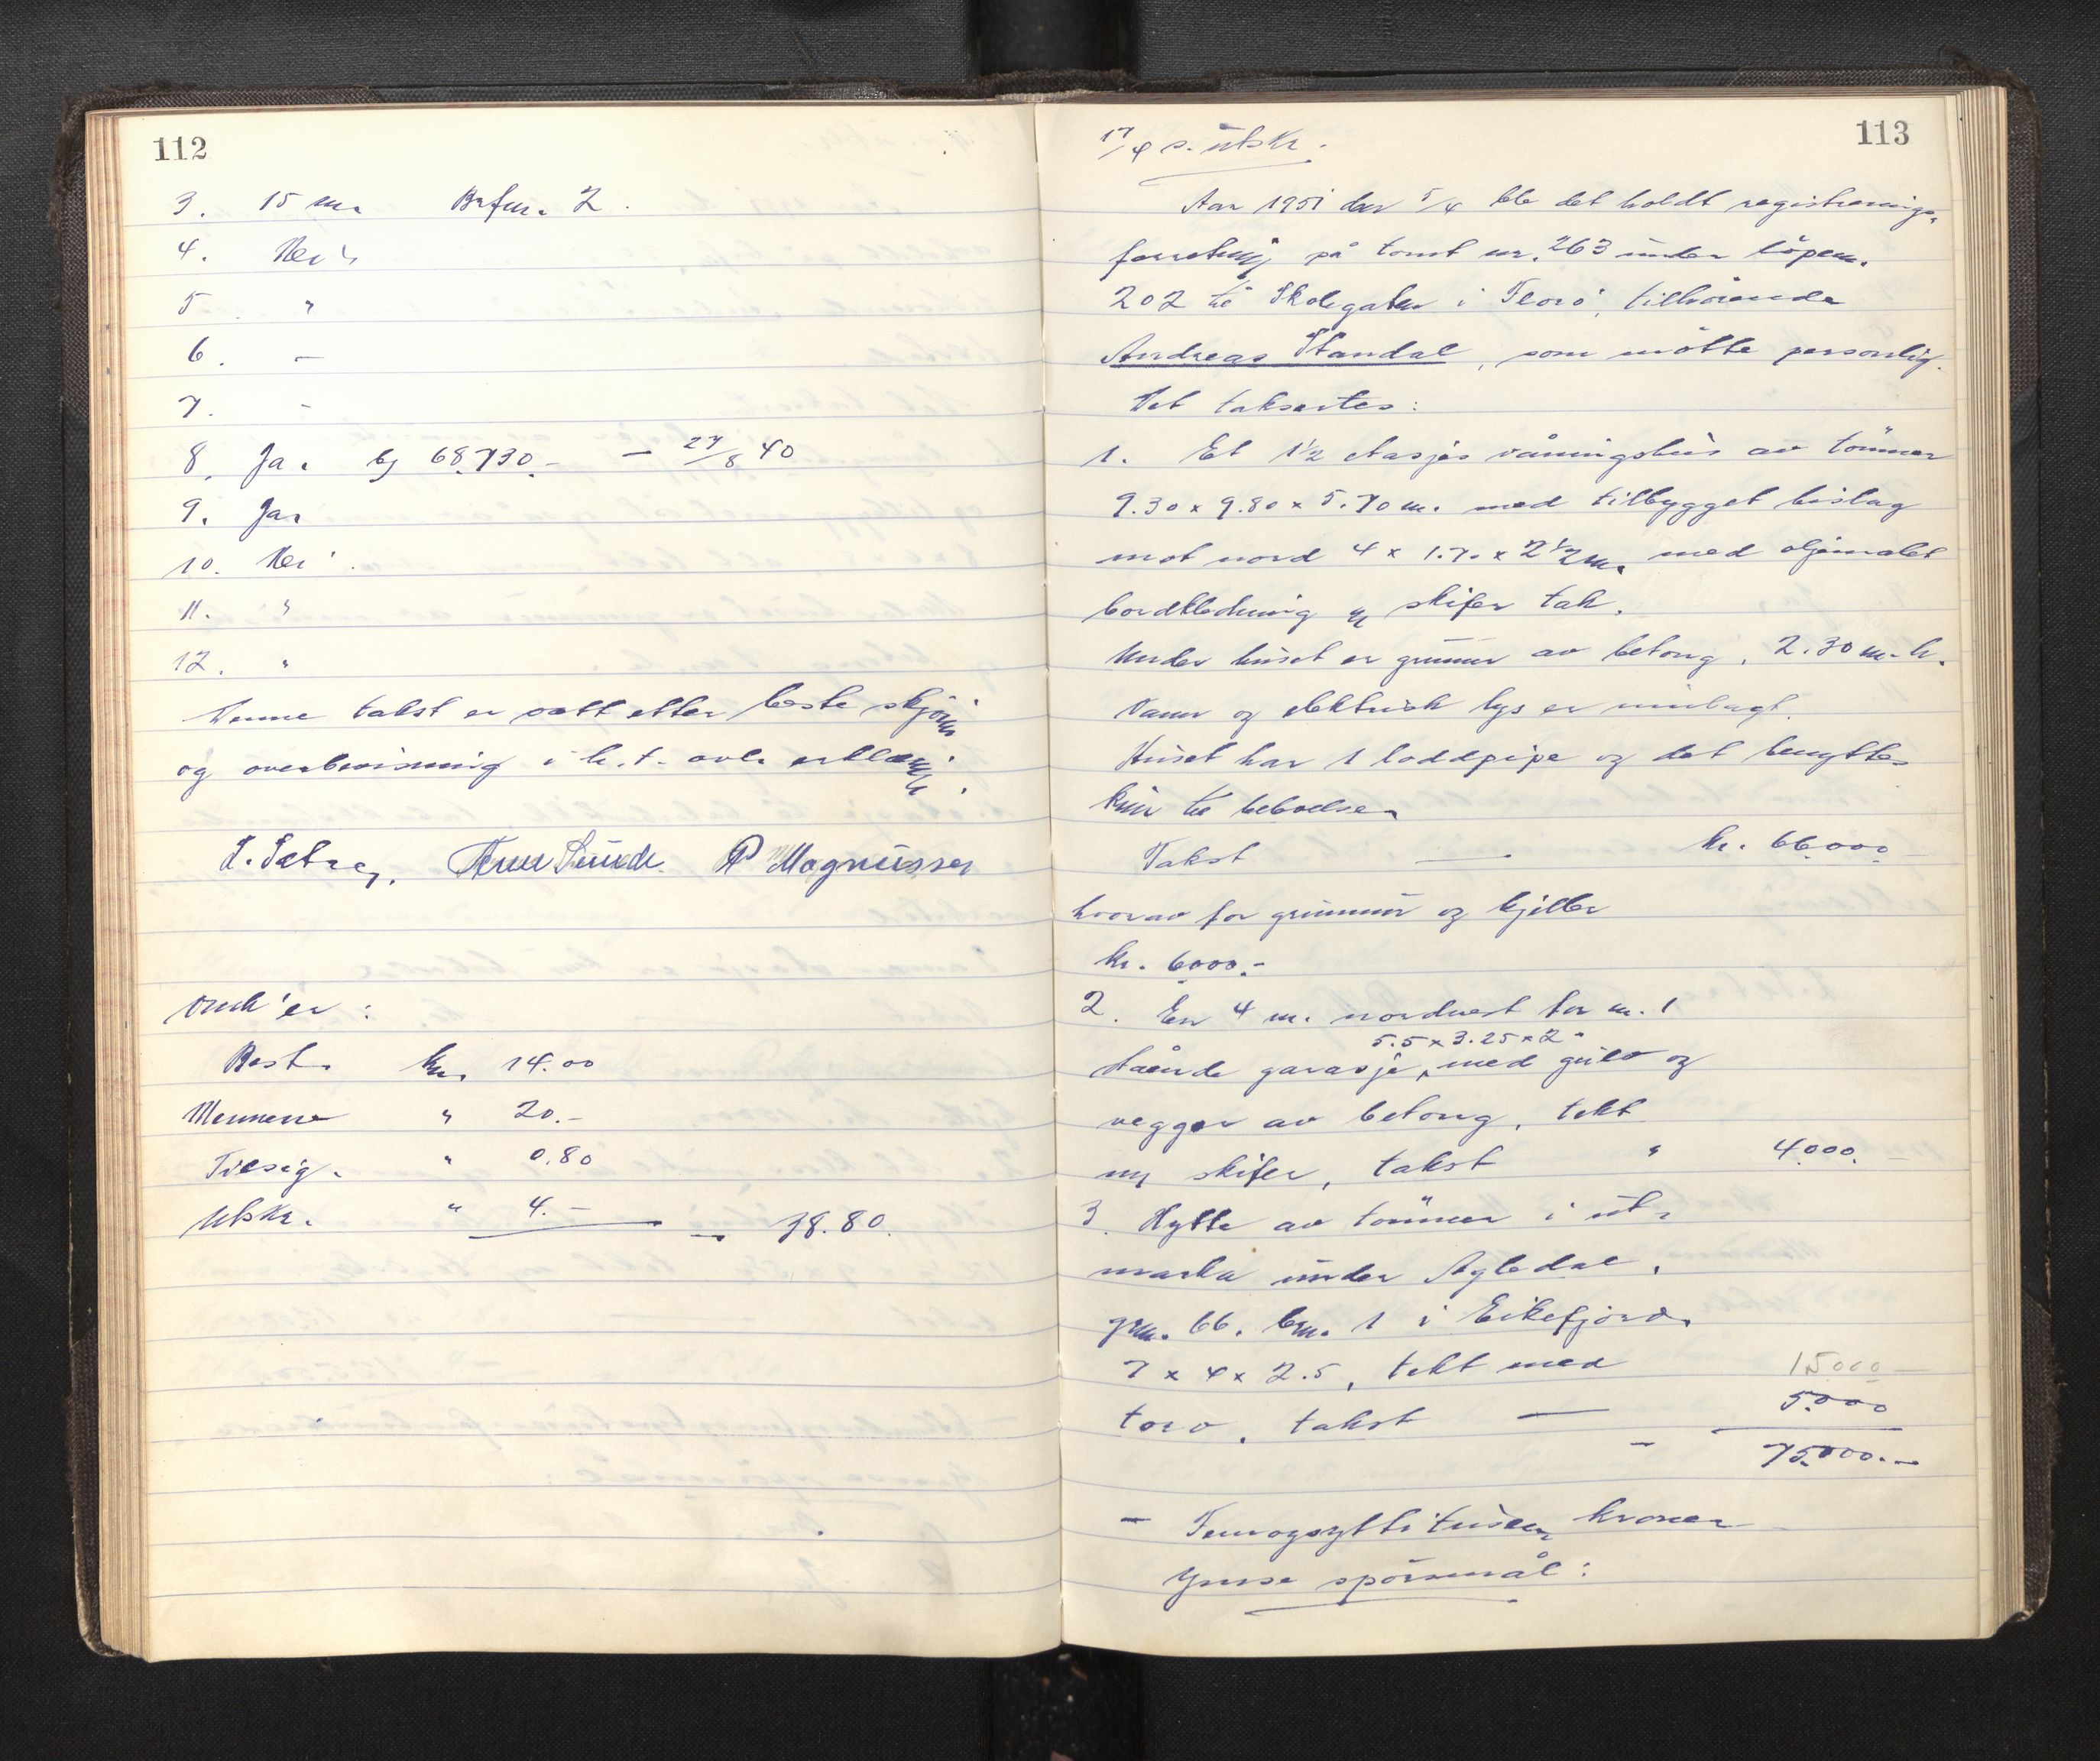 112
3. 15 m. Br.fm. 2.
4. Nei
5 "
6. —
7. -
8. Ja. kr 68.730.- — 27/8 40
9. Ja.
10. Nei.
11. "
12. "
Denne takst er satt etter beste skjønn
og overbevisning i h.t. avl. erklæring.
Arne Sunde P Magnussen
Omk'er:
Best. kr. 14.00
Mennene " 20.-
Tilsig. " 0.80
Utskr. " 4.— — 38.80.
113
17/4 s. utskr.
Aar 1951 den 5/4 ble det holdt registrerings-
forretning på tomt nr. 263 under löpenr.
202 til Skolegaten i Florö, tilhörende
Andreas Standal, som mötte personlig.
Det taksertes:
1. Et 1½ etasjes våningshus av tömmer
9.30 x 9.80 x 5.70 m. med tilbygget bislag
mot nord 4 x 1.70 x 2½ m. med oljemalet
bordkledning og skifer tak.
Under huset er grunnmur av betong, 2.30 m. h.
Vann og elektrisk lys er innlagt.
Huset har 1 loddpipe og det benyttes
kun til beboelse.
Takst — kr. 66.000 -
hvorav for grunnmur og kjeller
kr. 6000.-
2. En 4 m. nordvest for nr. 1
5.5 x 3.25 x 2 -
stående garasje, med gulv og
vegger av betong, tekt
m/ skifer, takst " 4.000. -
3. Hytte av tömmer i ut-
marka under Agledal,
grn. 66. brn. 1 i Eikefjord.
7 x 4 x 2.5, tekt med 15000 -
torv, takst — 5.000
- 75.000.-
- Femogsyttitusen kroner
Ymse spörsmål: